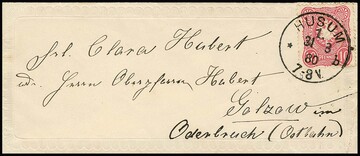 HUSUM
1.
31 3
80
7-8V.
Frl. Clara Hubert
adr. Herrn Oberpfarrer Hubert
Golzow im
Oderbruch (Ostbahn)